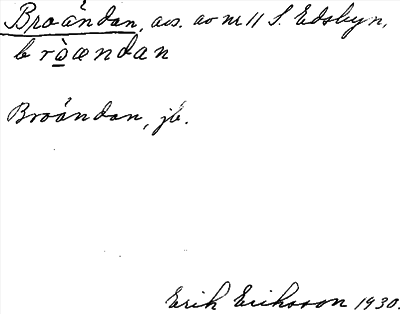 Broändan, avs. av nr 11 S. Edsbyn.
bròændan
Broändan, jb.
Erik Eriksson 1930.